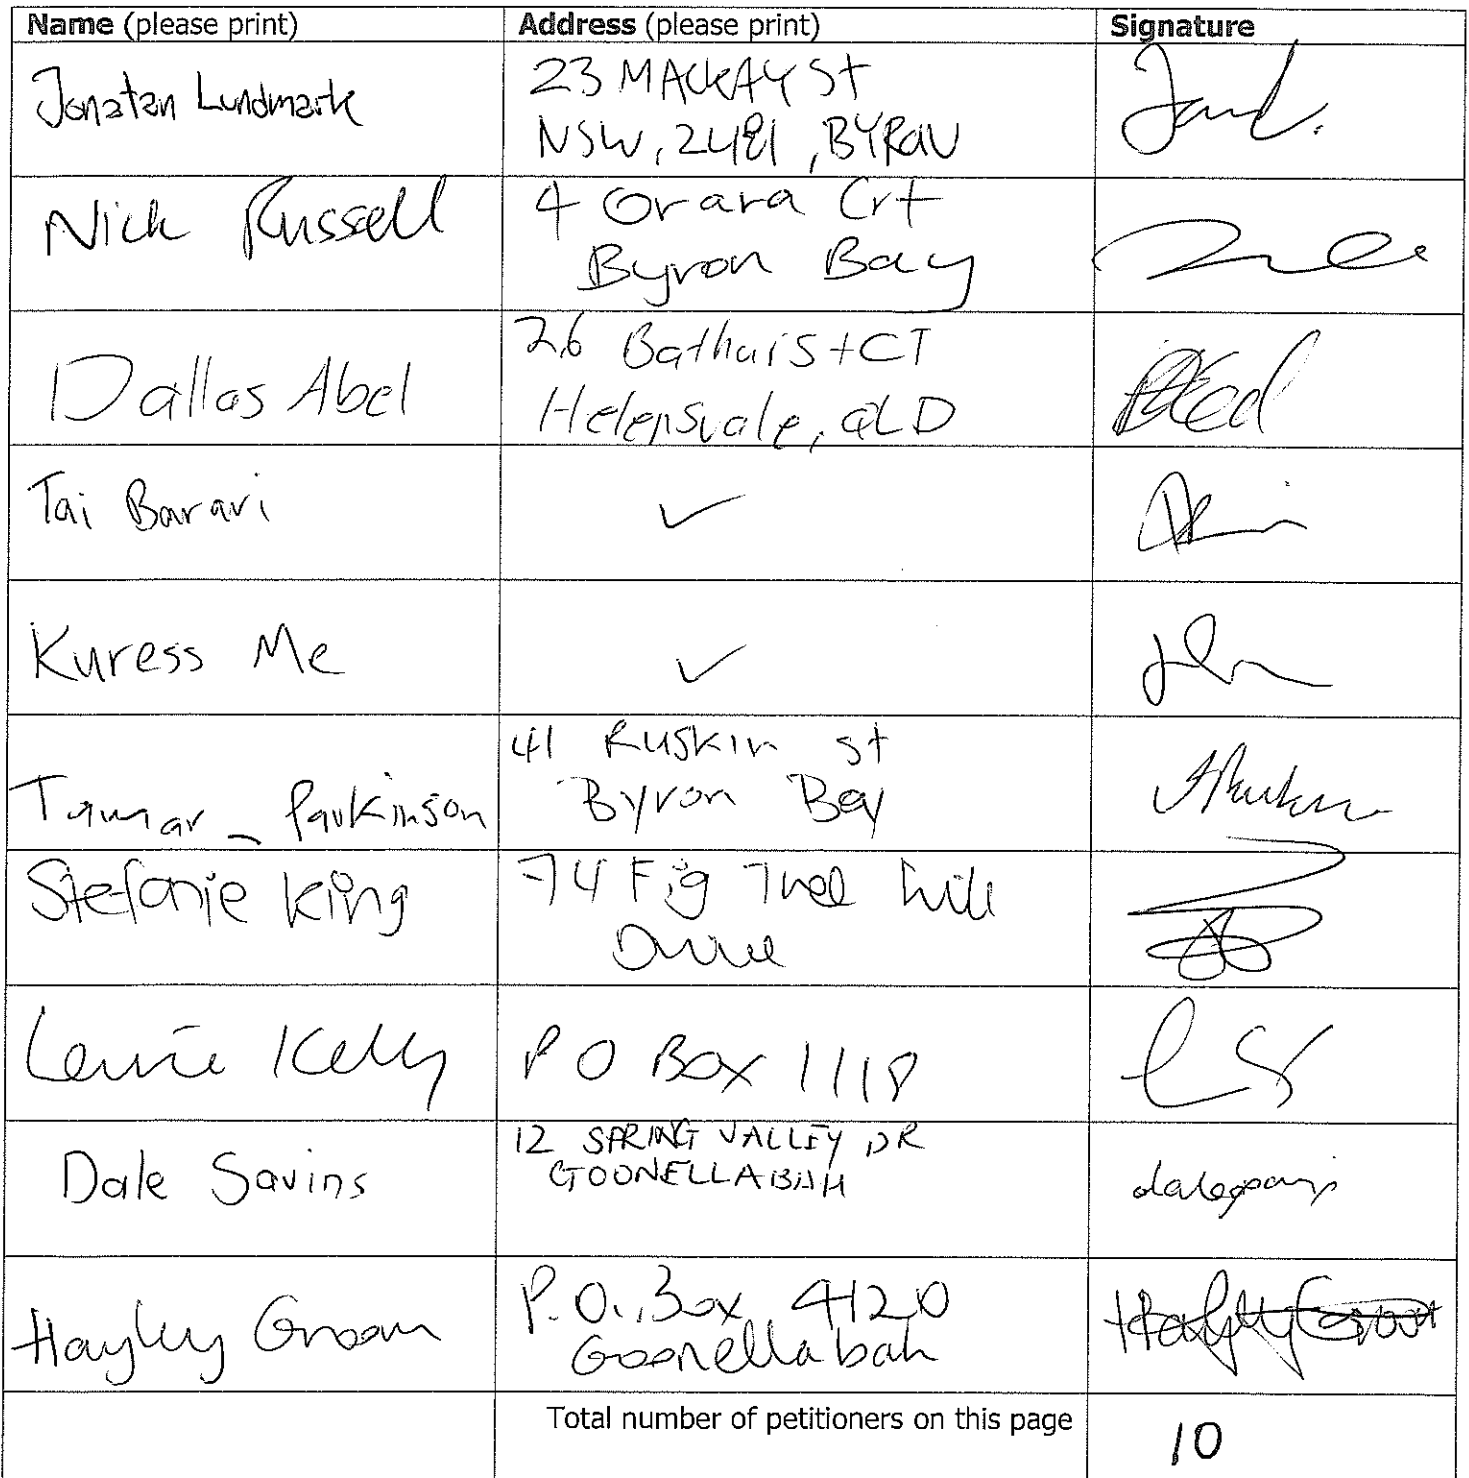 Name (please print) Address (please print) Signature
Jonatan Lundmark
23 MACKAY St
NSW, 2481, BYRON
Nick Russell
4 Orara Crt
Byron Bay
Dallas Abel
26 Bathurst CT
Helensvale, QLD
Tai Barari
✓
Kuress Me
✓
Tamar Parkinson
41 Ruskin St
Byron Bay
Stefanie King
74 Fig Tree hill
Drive
Kelly
P O Box 1118
Dale Savins
12 SPRING VALLEY DR
GOONELLABAH
Hayley Groom
P.O. Box 4120
Goonellabah
Hayley Groom
Total number of petitioners on this page
10